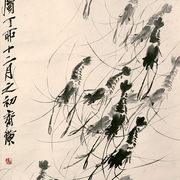 丁卯十二月之初齊璜